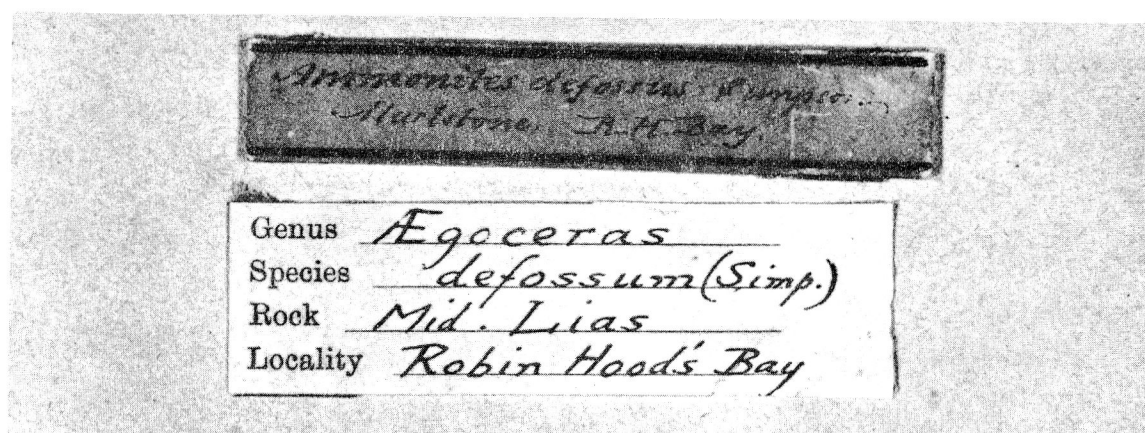 Ammonites defossus Simpson.
Marlstone. R. H. Bay.
Genus Ægoceras
Species defossum (Simp.)
Rock Mid. Lias
Locality Robin Hood's Bay